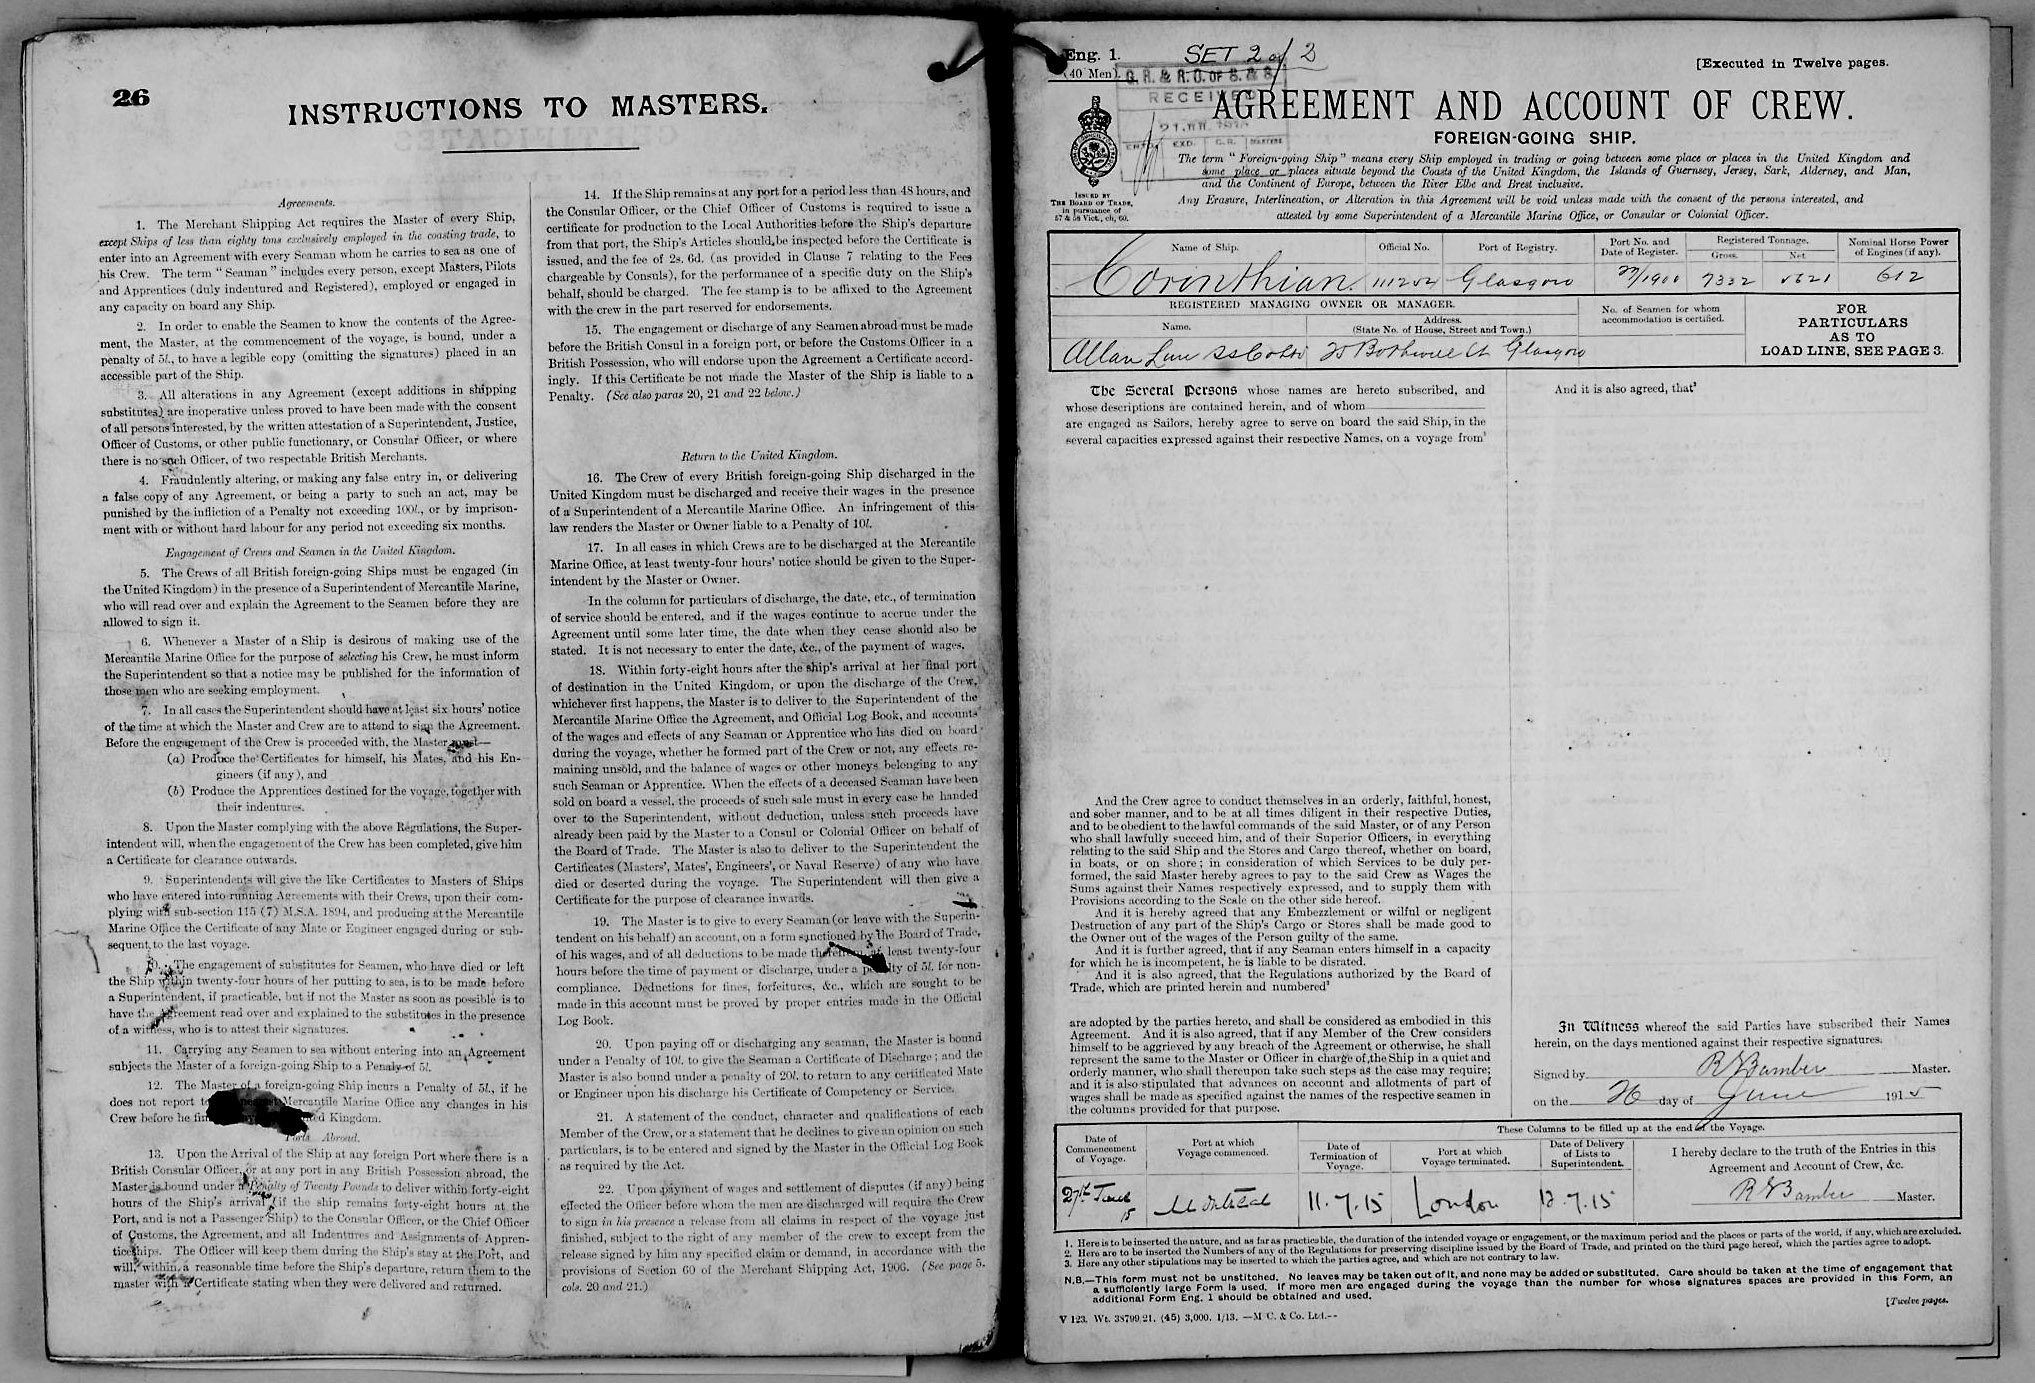 26
INSTRUCTIONS TO MASTERS.
Agreements.
1. The Merchant Shipping Act requires the Master of every Ship,
except Ships of less than eighty tons exclusively employed in the coasting trade, to
enter into an Agreement with every Seaman whom he carries to sea as one of
his Crew. The term "Seaman" includes every person, except Masters, Pilots
and Apprentices (duly indentured and Registered), employed or engaged in
any capacity on board any Ship.
2. In order to enable the Seamen to know the contents of the Agree-
ment, the Master, at the commencement of the voyage, is bound, under a
penalty of 5l., to have a legible copy (omitting the signatures) placed in an
accessible part of the Ship.
3. All alterations in any Agreement (except additions in shipping
substitutes) are inoperative unless proved to have been made with the consent
of all persons interested, by the written attestation of a Superintendent, Justice,
Officer of Customs, or other public functionary, or Consular Officer, or where
there is no such Officer, of two respectable British Merchants.
4. Fraudulently altering, or making any false entry in, or delivering
a false copy of any Agreement, or being a party to such an act, may be
punished by the infliction of a Penalty not exceeding 100l., or by imprison-
ment with or without hard labour for any period not exceeding six months.
Engagement of Crews and Seamen in the United Kingdom.
5. The Crews of all British foreign-going Ships must be engaged (in
the United Kingdom) in the presence of a Superintendent of Mercantile Marine,
who will read over and explain the Agreement to the Seamen before they are
allowed to sign it.
6. Whenever a Master of a Ship is desirous of making use of the
Mercantile Marine Office for the purpose of selecting his Crew, he must inform
the Superintendent so that a notice may be published for the information of
those men who are seeking employment.
7. In all cases the Superintendent should have at least six hours' notice
of the time at which the Master and Crew are to attend to sign the Agreement.
Before the engagement of the Crew is proceeded with, the Master must—
(a) Produce the Certificates for himself, his Mates, and his En-
gineers (if any), and
(b) Produce the Apprentices destined for the voyage, together with
their indentures.
8. Upon the Master complying with the above Regulations, the Super-
intendent will, when the engagement of the Crew has been completed, give him
a Certificate for clearance outwards.
9. Superintendents will give the like Certificates to Masters of Ships
who have entered into running Agreements with their Crews, upon their com-
plying with sub-section 115 (7) M.S.A. 1894, and producing at the Mercantile
Marine Office the Certificate of any Mate or Engineer engaged during or sub-
sequent to the last voyage.
10. The engagement of substitutes for Seamen, who have died or left
the Ship within twenty-four hours of her putting to sea, is to be made before
a Superintendent, if practicable, but if not the Master as soon as possible is to
have the Agreement read over and explained to the substitutes in the presence
of a witness, who is to attest their signatures.
11. Carrying any Seamen to sea without entering into an Agreement
subjects the Master of a foreign-going Ship to a Penalty of 5l.
12. The Master of a foreign-going Ship incurs a Penalty of 5l., if he
does not report to Mercantile Marine Office any changes in his
Crew before he Kingdom.
Ports Abroad.
13. Upon the Arrival of the Ship at any foreign Port where there is a
British Consular Officer, or at any port in any British Possession abroad, the
Master is bound under a Penalty of Twenty Pounds to deliver within forty-eight
hours of the Ship's arrival (if the ship remains forty-eight hours at the
Port, and is not a Passenger Ship) to the Consular Officer, or the Chief Officer
of Customs, the Agreement, and all Indentures and Assignments of Appren-
ticeships. The Officer will keep them during the Ship's stay at the Port, and
will, within a reasonable time before the Ship's departure, return them to the
master with a Certificate stating when they were delivered and returned.
14. If the Ship remains at any port for a period less than 48 hours, and
the Consular Officer, or the Chief Officer of Customs is required to issue a
certificate for production to the Local Authorities before the Ship's departure
from that port, the Ship's Articles should be inspected before the Certificate is
issued, and the fee of 2s. 6d. (as provided in Clause 7 relating to the Fees
chargeable by Consuls), for the performance of a specific duty on the Ship's
behalf, should be charged. The fee stamp is to be affixed to the Agreement
with the crew in the part reserved for endorsements.
15. The engagement or discharge of any Seamen abroad must be made
before the British Consul in a foreign port, or before the Customs Officer in a
British Possession, who will endorse upon the Agreement a Certificate accord-
ingly. If this Certificate be not made the Master of the Ship is liable to a
Penalty. (See also paras 20, 21 and 22 below.)
Return to the United Kingdom.
16. The Crew of every British foreign-going Ship discharged in the
United Kingdom must be discharged and receive their wages in the presence
of a Superintendent of a Mercantile Marine Office. An infringement of this
law renders the Master or Owner liable to a Penalty of 10l.
17. In all cases in which Crews are to be discharged at the Mercantile
Marine Office, at least twenty-four hours' notice should be given to the Super-
intendent by the Master or Owner.
In the column for particulars of discharge, the date, etc., of termination
of service should be entered, and if the wages continue to accrue under the
Agreement until some later time, the date when they cease should also be
stated. It is not necessary to enter the date, &c., of the payment of wages.
18. Within forty-eight hours after the ship's arrival at her final port
of destination in the United Kingdom, or upon the discharge of the Crew,
whichever first happens, the Master is to deliver to the Superintendent of the
Mercantile Marine Office the Agreement, and Official Log Book, and accounts
of the wages and effects of any Seaman or Apprentice who has died on board
during the voyage, whether he formed part of the Crew or not, any effects re-
maining unsold, and the balance of wages or other moneys belonging to any
such Seaman or Apprentice. When the effects of a deceased Seaman have been
sold on board a vessel, the proceeds of such sale must in every case be handed
over to the Superintendent, without deduction, unless such proceeds have
already been paid by the Master to a Consul or Colonial Officer on behalf of
the Board of Trade. The Master is also to deliver to the Superintendent the
Certificates (Masters', Mates', Engineers', or Naval Reserve) of any who have
died or deserted during the voyage. The Superintendent will then give a
Certificate for the purpose of clearance inwards.
19. The Master is to give to every Seaman (or leave with the Superin-
tendent on his behalf) an account, on a form sanctioned by the Board of Trade,
of his wages, and of all deductions to be made least twenty-four
hours before the time of payment or discharge, under a penalty of 5l. for non-
compliance. Deductions for fines, forfeitures, &c., which are sought to be
made in this account must be proved by proper entries made in the Official
Log Book.
20. Upon paying off or discharging any seaman, the Master is bound
under a Penalty of 10l. to give the Seaman a Certificate of Discharge; and the
Master is also bound under a penalty of 20l. to return to any certificated Mate
or Engineer upon his discharge his Certificate of Competency or Service.
21. A statement of the conduct, character and qualifications of each
Member of the Crew, or a statement that he declines to give an opinion on such
particulars, is to be entered and signed by the Master in the Official Log Book
as required by the Act.
22. Upon payment of wages and settlement of disputes (if any) being
effected the Officer before whom the men are discharged will require the Crew
to sign in his presence a release from all claims in respect of the voyage just
finished, subject to the right of any member of the crew to except from the
release signed by him any specified claim or demand, in accordance with the
provisions of Section 60 of the Merchant Shipping Act, 1906. (See page 5.
cols. 20 and 21.)
Eng. 1.
(40 Men).
SET 2 of 2
[Executed in Twelve pages.
G. R. & R. O. OF S. & S.
RECEIVED
AGREEMENT AND ACCOUNT OF CREW.
FOREIGN-GOING SHIP.
ISSUED BY
THE BOARD OF TRADE,
in pursuance of
57 & 58 Vict., ch. 60.
The term "Foreign-going Ship" means every Ship employed in trading or going between some place or places in the United Kingdom and
some place or places situate beyond the Coasts of the United Kingdom, the Islands of Guernsey, Jersey, Sark, Alderney, and Man,
and the Continent of Europe, between the River Elbe and Brest inclusive.
Any Erasure, Interlineation, or Alteration in this Agreement will be void unless made with the consent of the persons interested, and
attested by some Superintendent of a Mercantile Marine Office, or Consular or Colonial Officer.
Name of Ship. Official No. Port of Registry. Port No. and Date of Register. Registered Tonnage. Gross. Net. Nominal Horse Power of Engines (if any).
Corinthian 111252 Glasgow /1900 7332 621 612
REGISTERED MANAGING OWNER OR MANAGER.
Name. Address. (State No. of House, Street and Town.)
No. of Seamen for whom accommodation is certified.
Allan Line SS Co Ltd 25 Bothwell St Glasgow
FOR
PARTICULARS
AS TO
LOAD LINE, SEE PAGE 3.
The Several Persons whose names are hereto subscribed, and
whose descriptions are contained herein, and of whom
are engaged as Sailors, hereby agree to serve on board the said Ship, in the
several capacities expressed against their respective Names, on a voyage from¹
And the Crew agree to conduct themselves in an orderly, faithful, honest,
and sober manner, and to be at all times diligent in their respective Duties,
and to be obedient to the lawful commands of the said Master, or of any Person
who shall lawfully succeed him, and of their Superior Officers, in everything
relating to the said Ship and the Stores and Cargo thereof, whether on board,
in boats, or on shore; in consideration of which Services to be duly per-
formed, the said Master hereby agrees to pay to the said Crew as Wages the
Sums against their Names respectively expressed, and to supply them with
Provisions according to the Scale on the other side hereof.
And it is hereby agreed that any Embezzlement or wilful or negligent
Destruction of any part of the Ship's Cargo or Stores shall be made good to
the Owner out of the wages of the Person guilty of the same.
And it is further agreed, that if any Seaman enters himself in a capacity
for which he is incompetent, he is liable to be disrated.
And it is also agreed, that the Regulations authorized by the Board of
Trade, which are printed herein and numbered²
are adopted by the parties hereto, and shall be considered as embodied in this
Agreement. And it is also agreed, that if any Member of the Crew considers
himself to be aggrieved by any breach of the Agreement or otherwise, he shall
represent the same to the Master or Officer in charge of the Ship in a quiet and
orderly manner, who shall thereupon take such steps as the case may require;
and it is also stipulated that advances on account and allotments of part of
wages shall be made as specified against the names of the respective seamen in
the columns provided for that purpose.
And it is also agreed, that³
In Witness whereof the said Parties have subscribed their Names
herein, on the days mentioned against their respective signatures.
Signed by R J Bamber Master.
on the 26 day of June 1915
These Columns to be filled up at the end of the Voyage.
Date of Commencement of Voyage. Port at which Voyage commenced. Date of Termination of Voyage. Port at which Voyage terminated. Date of Delivery of Lists to Superintendent.
27th June 15 Montreal 11.7.15 London 12.7.15
I hereby declare to the truth of the Entries in this
Agreement and Account of Crew, &c.
R J Bamber Master.
1. Here is to be inserted the nature, and as far as practicable, the duration of the intended voyage or engagement, or the maximum period and the places or parts of the world, if any, which are excluded.
2. Here are to be inserted the Numbers of any of the Regulations for preserving discipline issued by the Board of Trade, and printed on the third page hereof, which the parties agree to adopt.
3. Here any other stipulations may be inserted to which the parties agree, and which are not contrary to law.
N.B.—This form must not be unstitched. No leaves may be taken out of it, and none may be added or substituted. Care should be taken at the time of engagement that
a sufficiently large Form is used. If more men are engaged during the voyage than the number for whose signatures spaces are provided in this Form, an
additional Form Eng. 1 should be obtained and used.
[Twelve pages.
V 123. Wt. 38799.21. (45) 3,000. 1/13. —M C. & Co. Ltd.—